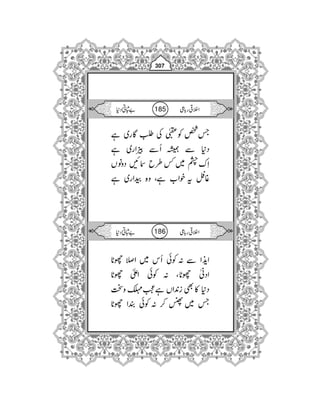 307
اخلاقی رباعی 185 بے ثباتیٔ دنیا
جس شخص کو عقبیٰ کی طلب گاری ہے
دنیا سے ہمیشہ اُسے بیزاری ہے
اِک چشم میں کس طرح سمائیں دونوں
غافل یہ خواب ہے، وہ بیداری ہے
اخلاقی رباعی 186 بے ثباتیٔ دنیا
ایذا سے نہ کوئی اُس میں اصلا چھوٹا
ادنیٰ چھوٹا، نہ کوئی اعلیٰ چھوٹا
دنیا کا بھی زنداں ہے عجب مہلکہ و سخت
جس میں پھنس کر نہ کوئی بندا چھوٹا